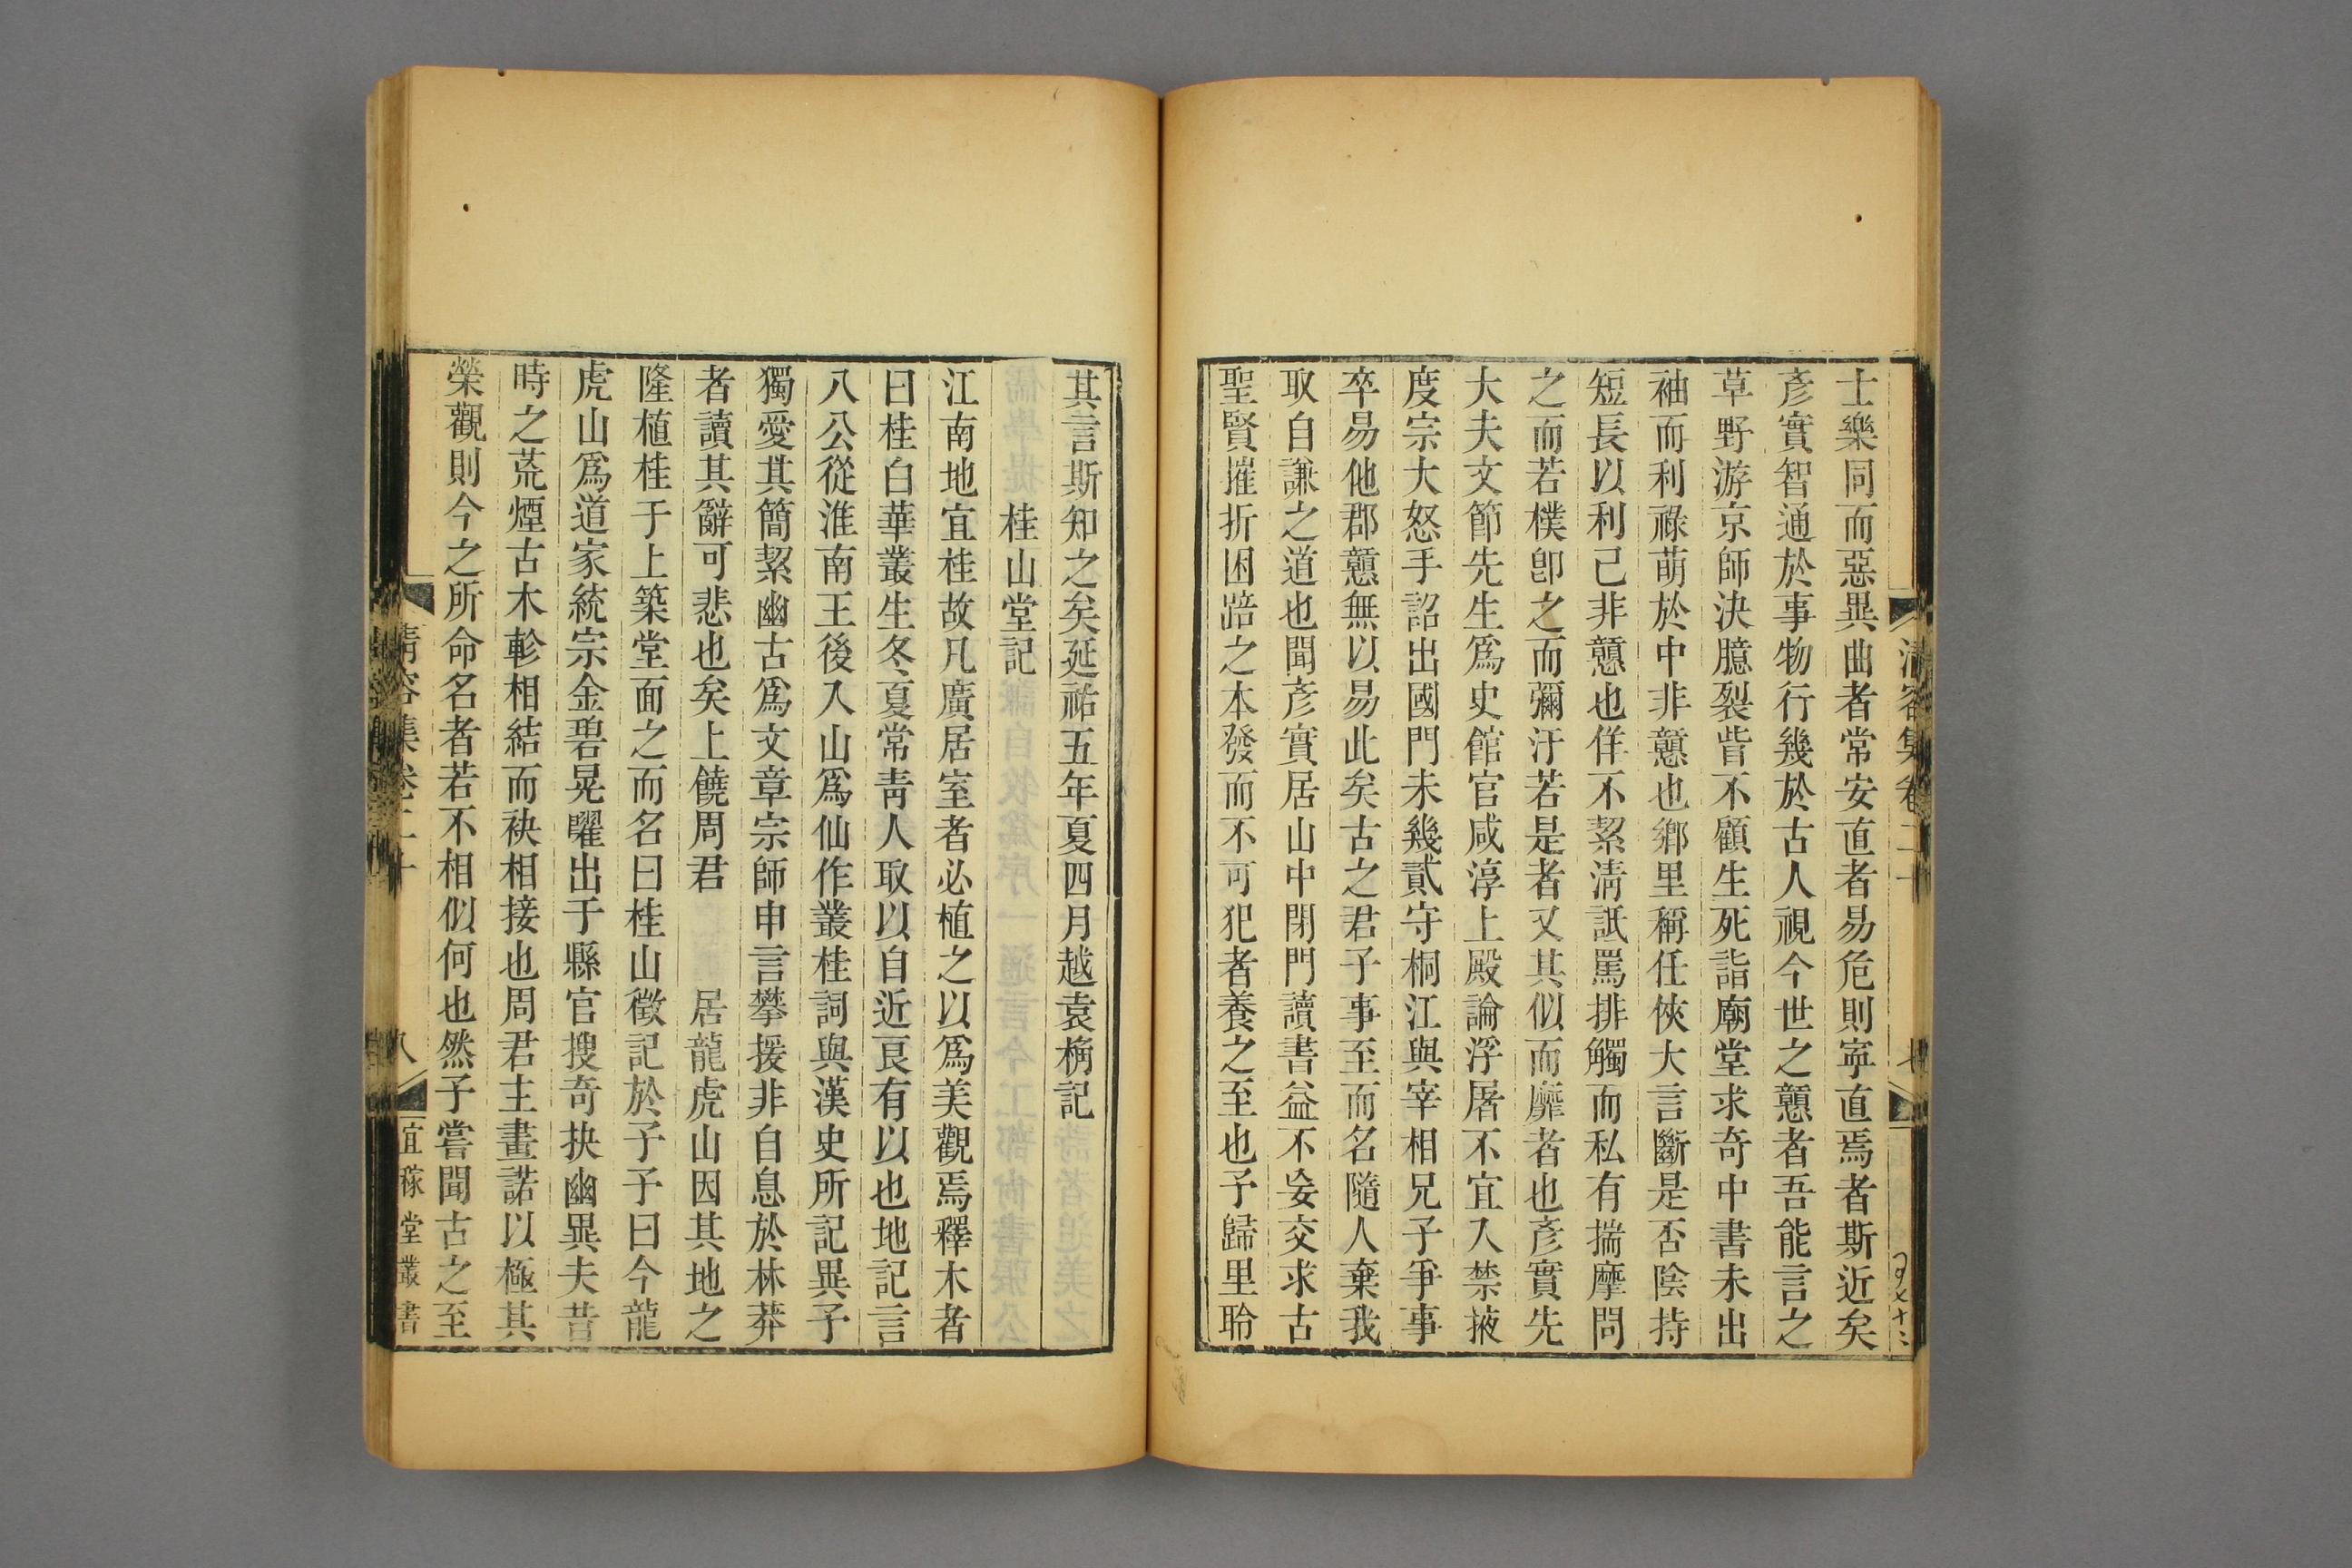 士樂同而惡異曲者常安直者易危則寧直焉者斯近矣
彥實智通於事物行幾於古人視今世之戇者吾能言之
草野游京師決臆裂眥不顧生死詣廟堂求奇中書未出
袖而利祿萌於中非戇也鄉里稱任俠大言斷是否陰持
短長以利己非戇也佯不絜淸詆罵排觸而私有揣摩問
之而若樸卽之而彌汙若是者又其似而靡者也彥實先
大夫文節先生爲史館官咸淳上殿論浮屠不宜入禁掖
度宗大怒手詔出國門未幾貳守桐江與宰相兄子爭事
卒易他郡戇無以易此矣古之君子事至而名隨人棄我
取自謙之道也聞彥實居山中閉門讀書益不妄交求古
聖賢摧折困踣之本發而不可犯者養之至也予歸里聆
其言斯知之矣延祐五年夏四月越袁桷記
桂山堂記
江南地宜桂故凡廣居室者必植之以爲美觀焉釋木者
曰桂白華叢生冬夏常靑人取以自近良有以也地記言
八公從淮南王後入山爲仙作叢桂詞與漢史所記異予
獨愛其簡絜幽古爲文章宗師申言攀援非自息於林莽
者讀其辭可悲也矣上饒周君 居龍虎山因其地之
隆植桂于上築堂面之而名曰桂山徵記於予予曰今龍
虎山爲道家統宗金碧晃曜出于縣官搜奇抉幽異夫昔
時之荒煙古木軫相結而袂相接也周君主畫諾以極其
榮觀則今之所命名者若不相似何也然予嘗聞古之至
淸容集卷二十
八
宜稼堂叢書